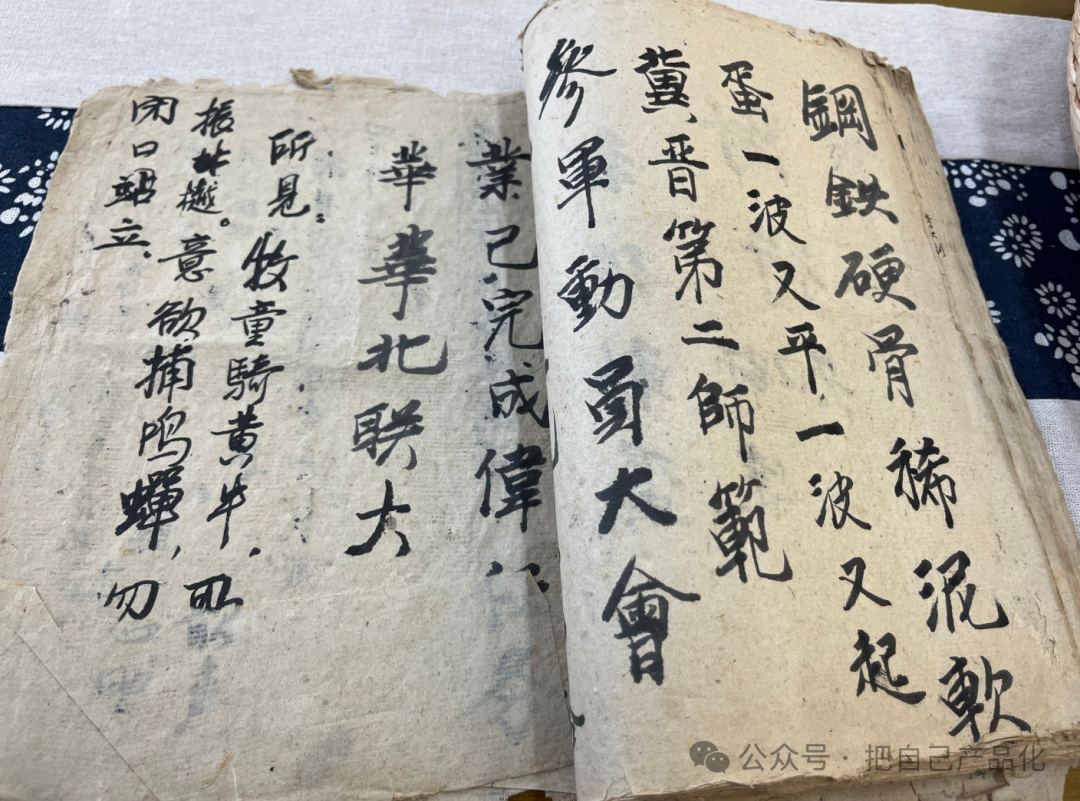 鋼鉄硬骨稀泥軟
蛋一波又平一波又起
冀晋第二師範
參軍動員大會
業已完成偉
華華北联大
所見。牧童騎黄牛，
振林樾。意欲捕鸣蟬，勿
闭口站立、
公众号·把自己产品化